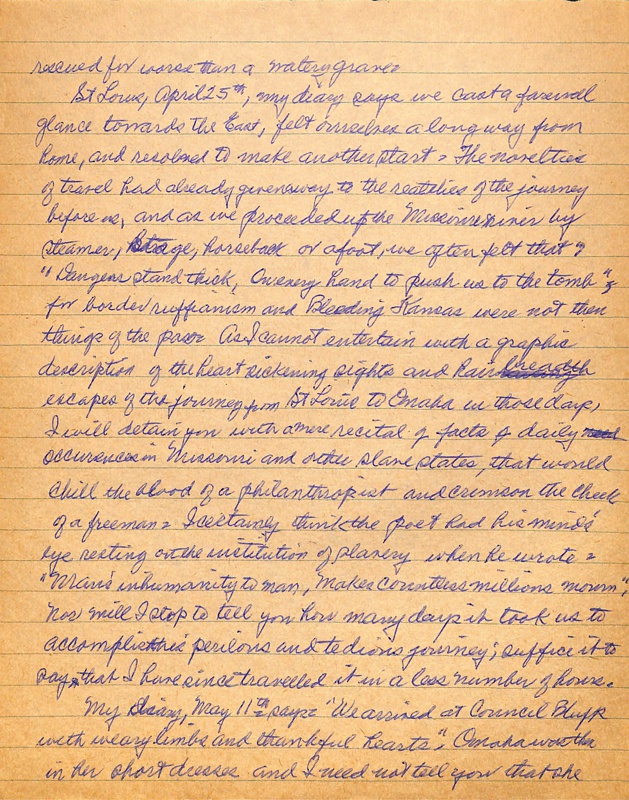 rescued for worse than a watery grave.
St Louis, April 25th, my diary says we cast a farewell
glance towards the East, felt ourselves a long way from
home, and resolved to make another start. The novelties
of travel had already given way to the realities of the journey
before us, and as we proceeded up the Missouri river by
steamer, stage, horseback or afoot, we often felt that
"Dangers stand thick, On every hand to push us to the tomb";
for border ruffianism and Bleeding Kansas were not then
things of the past. As I cannot entertain with a graphic
description of the heart sickening sights and hair breadth
escapes of the journey from St Louis to Omaha in those days,
I will detain you with a mere recital of facts of daily
occurences in Missouri and other slave states, that would
chill the blood of a philanthropist and crimson the cheek
of a freeman. I certainly think the poet had his minds'
eye resting on the institution of slavery when he wrote =
"Man's inhumanity to man, Makes countless millions mourn";
Nor will I stop to tell you how many days it took us to
accomplish this perilous and tedious journey; suffice it to
say, that I have since travelled it in a less number of hours.
My diary, May 11th says "We arrived at Council Bluffs
with weary limbs and thankful hearts"; Omaha was then
in her short dresses and I need not tell you that she